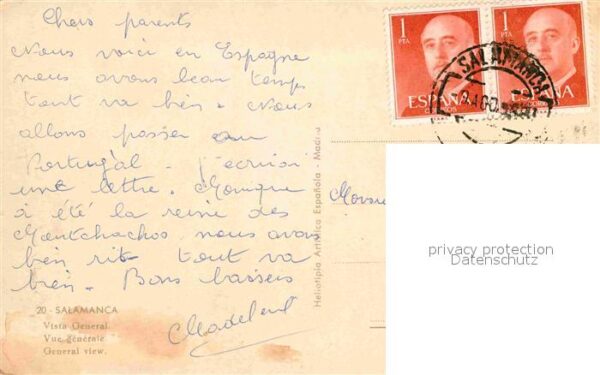 Chers parents
Nous voici en Espagne
nous avons beau temps
tout va bien. Nous
allons passer au
Portugal - j'écrirai
une lettre. Monique
a été la reine des
Moutchachos nous avons
bien rit tout va
bien. Bons baisers
Madeleine
20 - SALAMANCA
Vista General.
Vue générale.
General view.
Heliotipia Artística Española - Madrid
1
PTA
ESPAÑA
CORREOS
1
PTA
ESPAÑA
CORREOS
SALAMANCA
AGO
Monsieur
privacy protection
Datenschutz